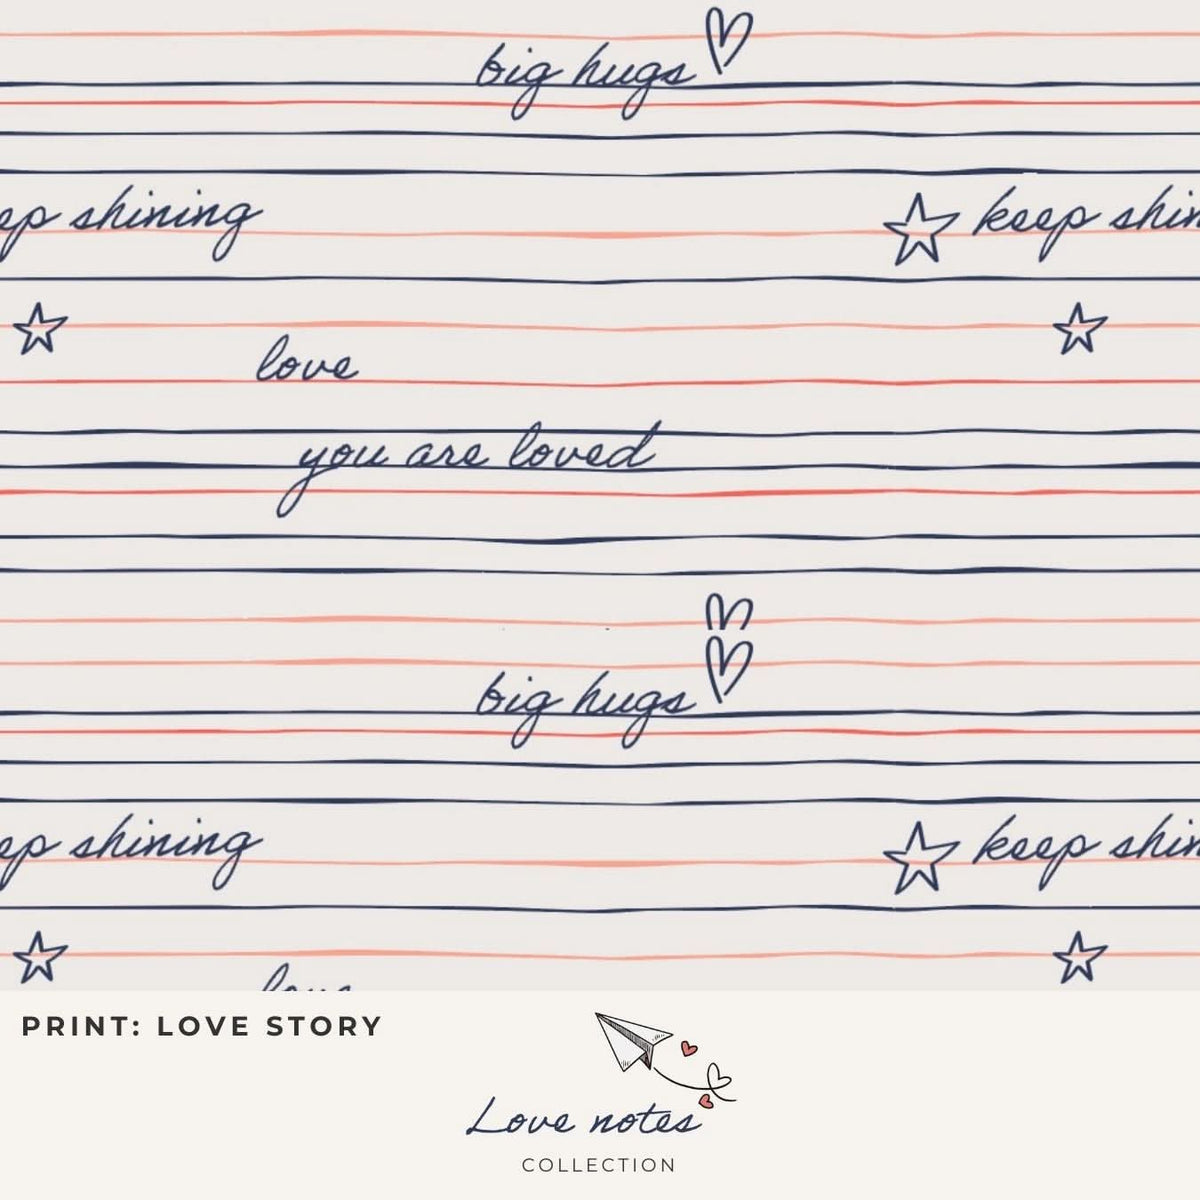 big hugs
ep shining
keep shin
love
you are loved
big hugs
ep shining
keep shin
love
PRINT: LOVE STORY
Love notes
COLLECTION